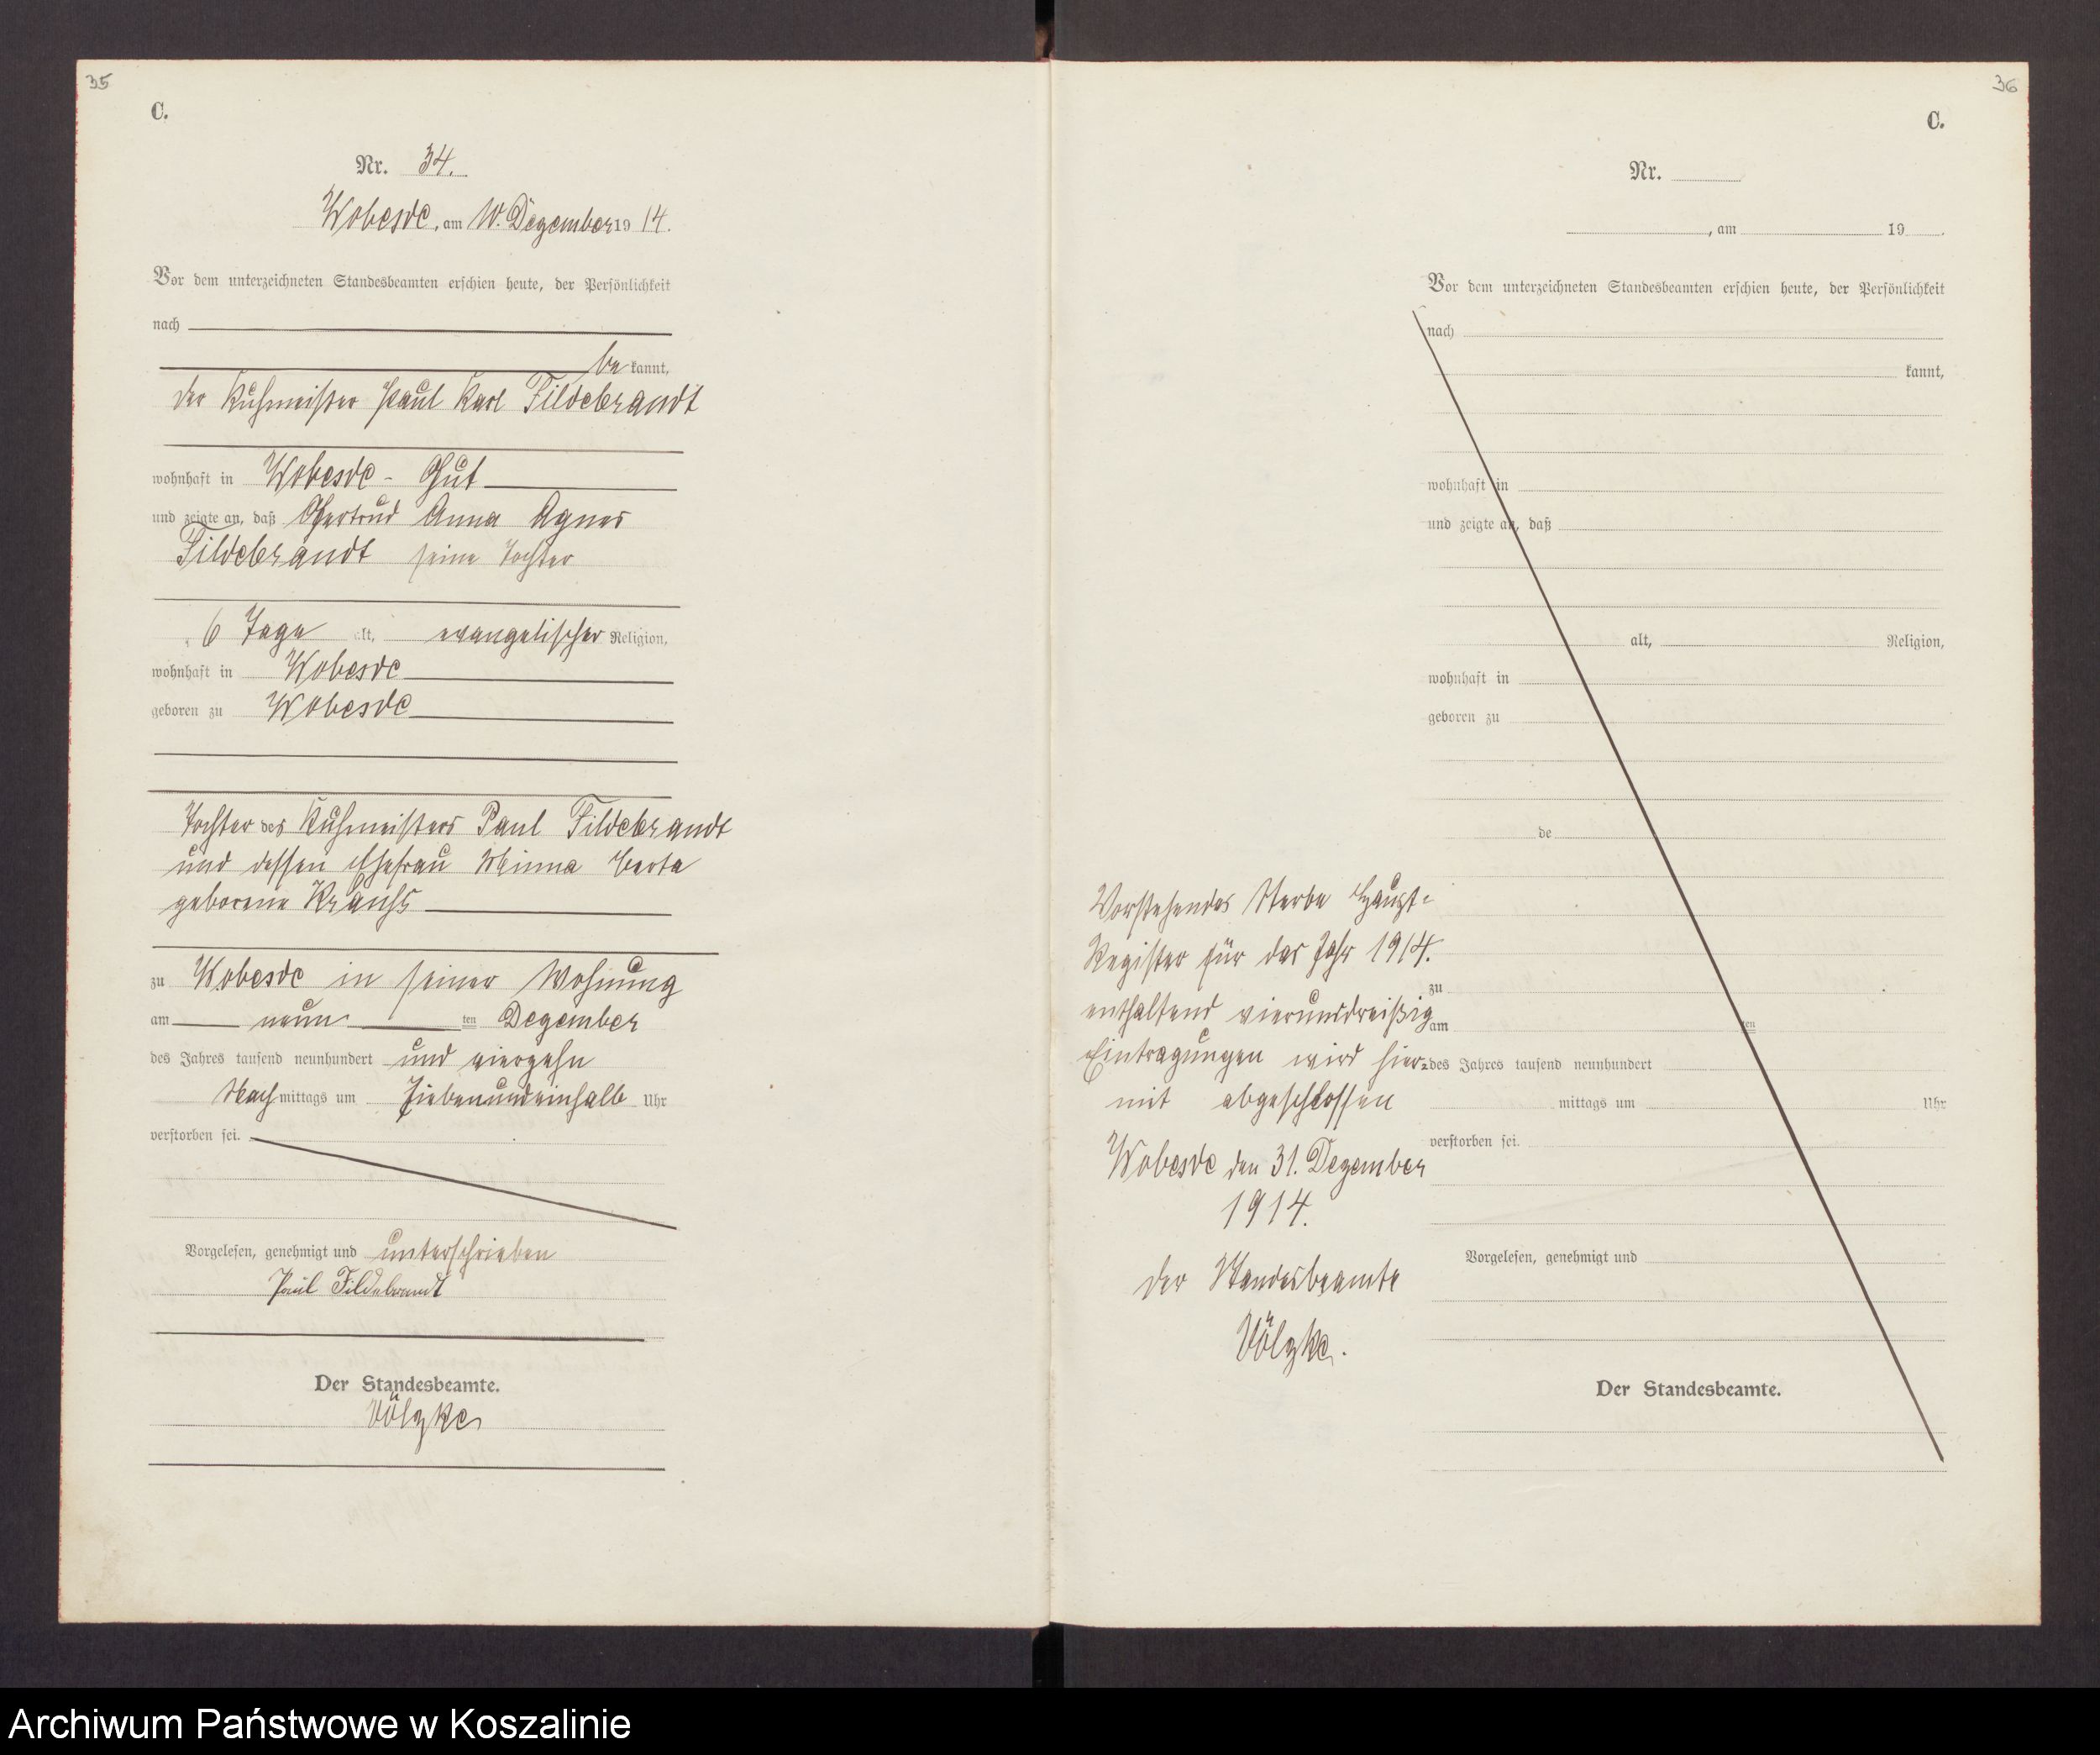 35
C.
Nr. 34.
Wobesde, am 10. Dezember 19 14.
Vor dem unterzeichneten Standesbeamten erschien heute, der Persönlichkeit
nach
be kannt,
der Kuhmeister Paul Karl Fildebrandt
wohnhaft in Wobesde - Gut
und zeigte an, daß Gertrud Anna Agnes
Fildebrandt seine Tochter
6 Tage alt, evangelischer Religion,
wohnhaft in Wobesde
geboren zu Wobesde
Tochter des Kuhmeisters Paul Fildebrandt
und dessen Ehefrau Minna Berta
geborene
zu Wobesde in seiner Wohnung
am neun ten Dezember
des Jahres tausend neunhundert und vierzehn
Nach mittags um siebenundeinhalb Uhr
verstorben sei.
Vorgelesen, genehmigt und unterschrieben
Paul Fildebrandt
Der Standesbeamte.
Völzke
36
C.
Nr.
, am 19 .
Vor dem unterzeichneten Standesbeamten erschien heute, der Persönlichkeit
nach
kannt,
wohnhaft in
und zeigte an, daß
alt, Religion,
wohnhaft in
geboren zu
de
zu
am ten
des Jahres tausend neunhundert
mittags um Uhr
verstorben sei.
Vorgelesen, genehmigt und
Der Standesbeamte.
Vorstehendes Sterbe Haupt-
Register für das Jahr 1914.
enthaltend vierunddreißig
Eintragungen wird hier-
mit abgeschlossen
Wobesde den 31. Dezember
1914.
Der Standesbeamte
Völzke.
Archiwum Państwowe w Koszalinie